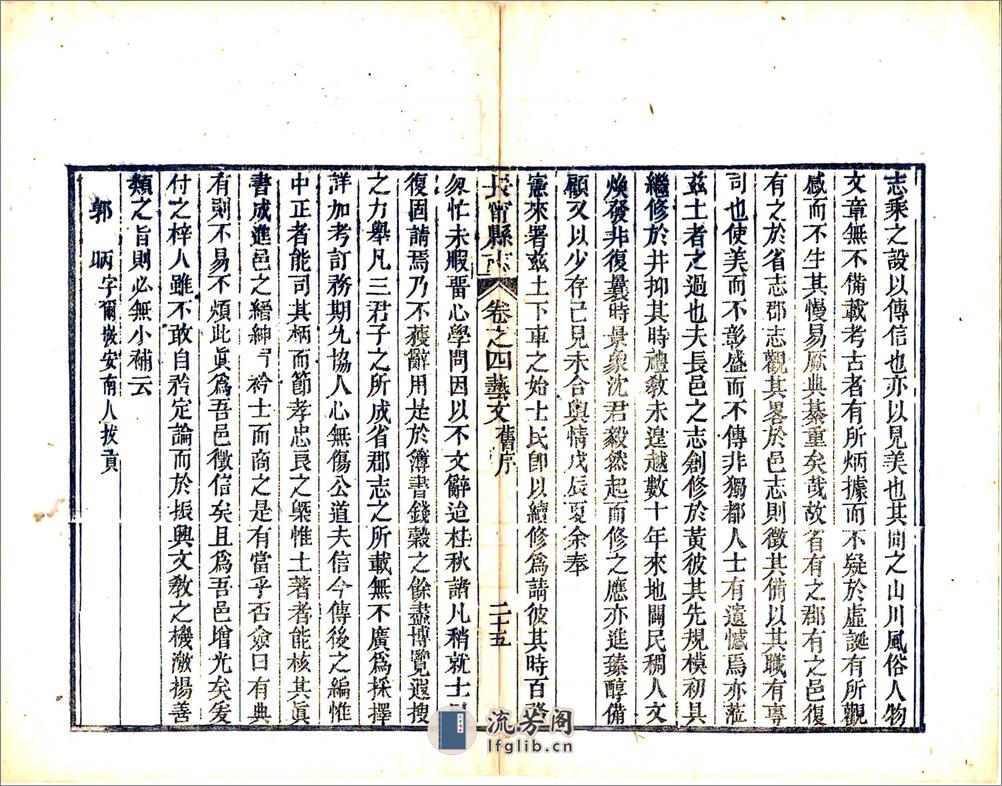 志乘之設以傳信也亦以見美也其間之山川風俗人物
文章無不備載考古者有所炳據而不疑於虛誕有所觀
感而不生其慢易厥典綦重矣哉故省有之郡有之邑復
有之於省志郡志觀其畧於邑志則徵其備以其職有專
司也使美而不彰盛而不傳非獨都人士有遺憾焉亦蒞
茲土者之過也夫長邑之志創修於黃彼其先規模初具
繼修於井抑其時禮教未遑越數十年來地闢民稠人文
煥發非復曩時景象沈君毅然起而修之應亦進臻醇備
顧又以少存己見未合輿情戊辰夏余奉
憲來署茲土下車之始士民卽以續修爲請彼其時百務
匆忙未暇畱心學問因以不文辭迨桂秋諸凡稍就士
長甯縣志
卷之四藝文
舊序
二十五
復固請焉乃不獲辭用是於簿書錢穀之餘盡博覽遐搜
之力舉凡三君子之所成省郡志之所載無不廣爲採擇
詳加考訂務期允協人心無傷公道夫信今傳後之編惟
中正者能司其柄而節孝忠良之槩惟土著者能核其眞
書成進邑之縉紳衿士而商之是有當乎否僉曰有典
有則不易不煩此眞爲吾邑徵信矣且爲吾邑增光矣爰
付之梓人雖不敢自矜定論而於振興文教之機激揚善
類之旨則必無小補云
郭昞字爾嶶安南人拔貢
流芳阁
lfglib.cn